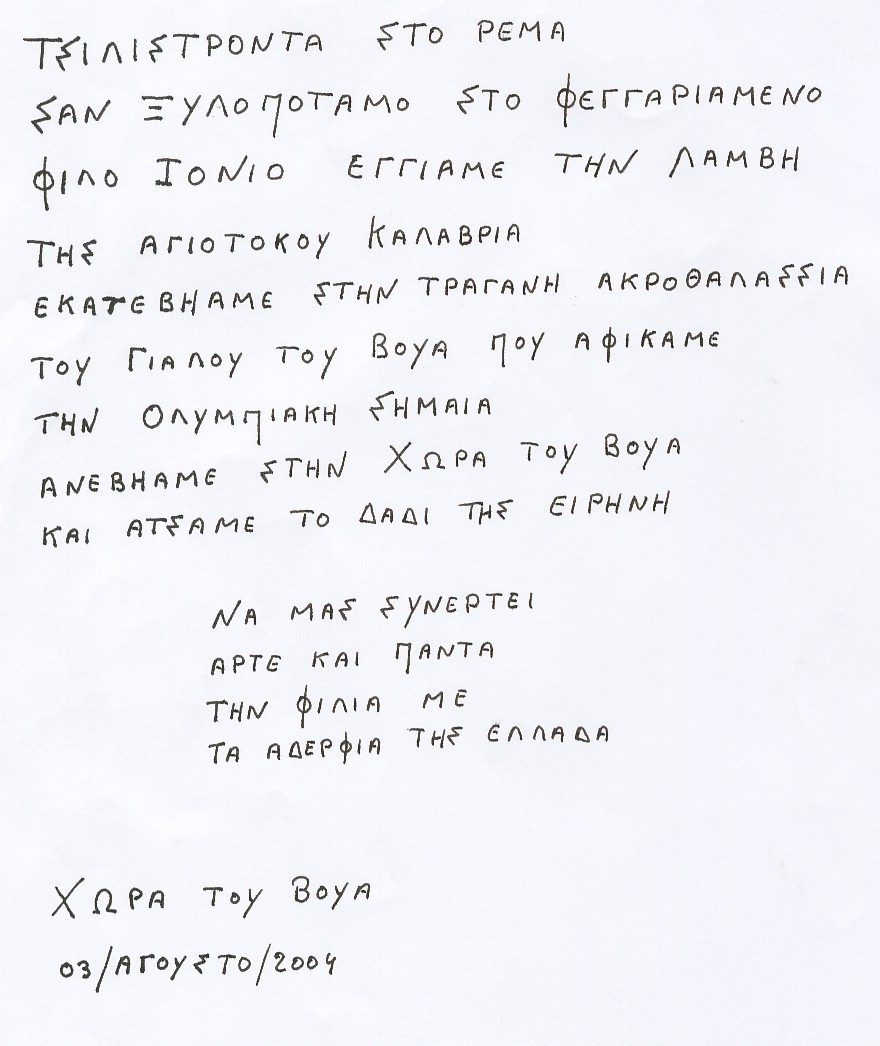 ΤΣΙΛΙΣΤΡΟΝΤΑ ΣΤΟ ΡΕΜΑ
ΣΑΝ ΞΥΛΟΠΟΤΑΜΟ ΣΤΟ ΦΕΓΓΑΡΙΑΜΕΝΟ
ΦΙΛΟ ΙΟΝΙΟ ΕΓΓΙΑΜΕ ΤΗΝ ΛΑΜΒΗ
ΤΗΣ ΑΓΙΟΤΟΚΟΥ ΚΑΛΑΒΡΙΑ
ΕΚΑΤΕΒΗΑΜΕ ΣΤΗΝ ΤΡΑΓΑΝΗ ΑΚΡΟΘΑΛΑΣΣΙΑ
ΤΟΥ ΓΙΑΛΟΥ ΤΟΥ ΒΟΥΑ ΠΟΥ ΑΦΙΚΑΜΕ
ΤΗΝ ΟΛΥΜΠΙΑΚΗ ΣΗΜΑΙΑ
ΑΝΕΒΗΑΜΕ ΣΤΗΝ ΧΩΡΑ ΤΟΥ ΒΟΥΑ
ΚΑΙ ΑΤΣΑΜΕ ΤΟ ΔΑΔΙ ΤΗΣ ΕΙΡΗΝΗ
ΝΑ ΜΑΣ ΣΥΝΕΡΤΕΙ
ΑΡΤΕ ΚΑΙ ΠΑΝΤΑ
ΤΗΝ ΦΙΛΙΑ ΜΕ
ΤΑ ΑΔΕΡΦΙΑ ΤΗΣ ΕΛΛΑΔΑ
ΧΩΡΑ ΤΟΥ ΒΟΥΑ
03/ΑΓΟΥΣΤΟ/2004